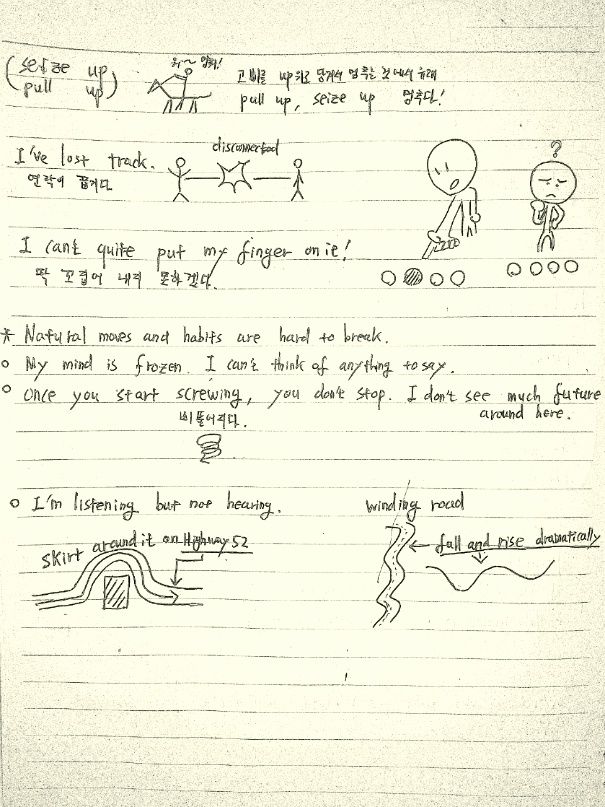 (seize up
pull up)
워~ 멈춰!
고삐를 up 위로 당겨서 멈추는 것에서 유래
pull up, seize up 멈추다!
I've lost track.
연락이 끊기다.
disconnected
?
I can't quite put my finger on it!
딱 꼬집어 내지 못하겠다.
* Natural moves and habits are hard to break.
o My mind is frozen. I can't think of anything to say.
o Once you start screwing, you don't stop. I don't see much future
around here.
비틀어지다.
o I'm listening but not hearing.
skirt around it on Highway 52
winding road
fall and rise dramatically